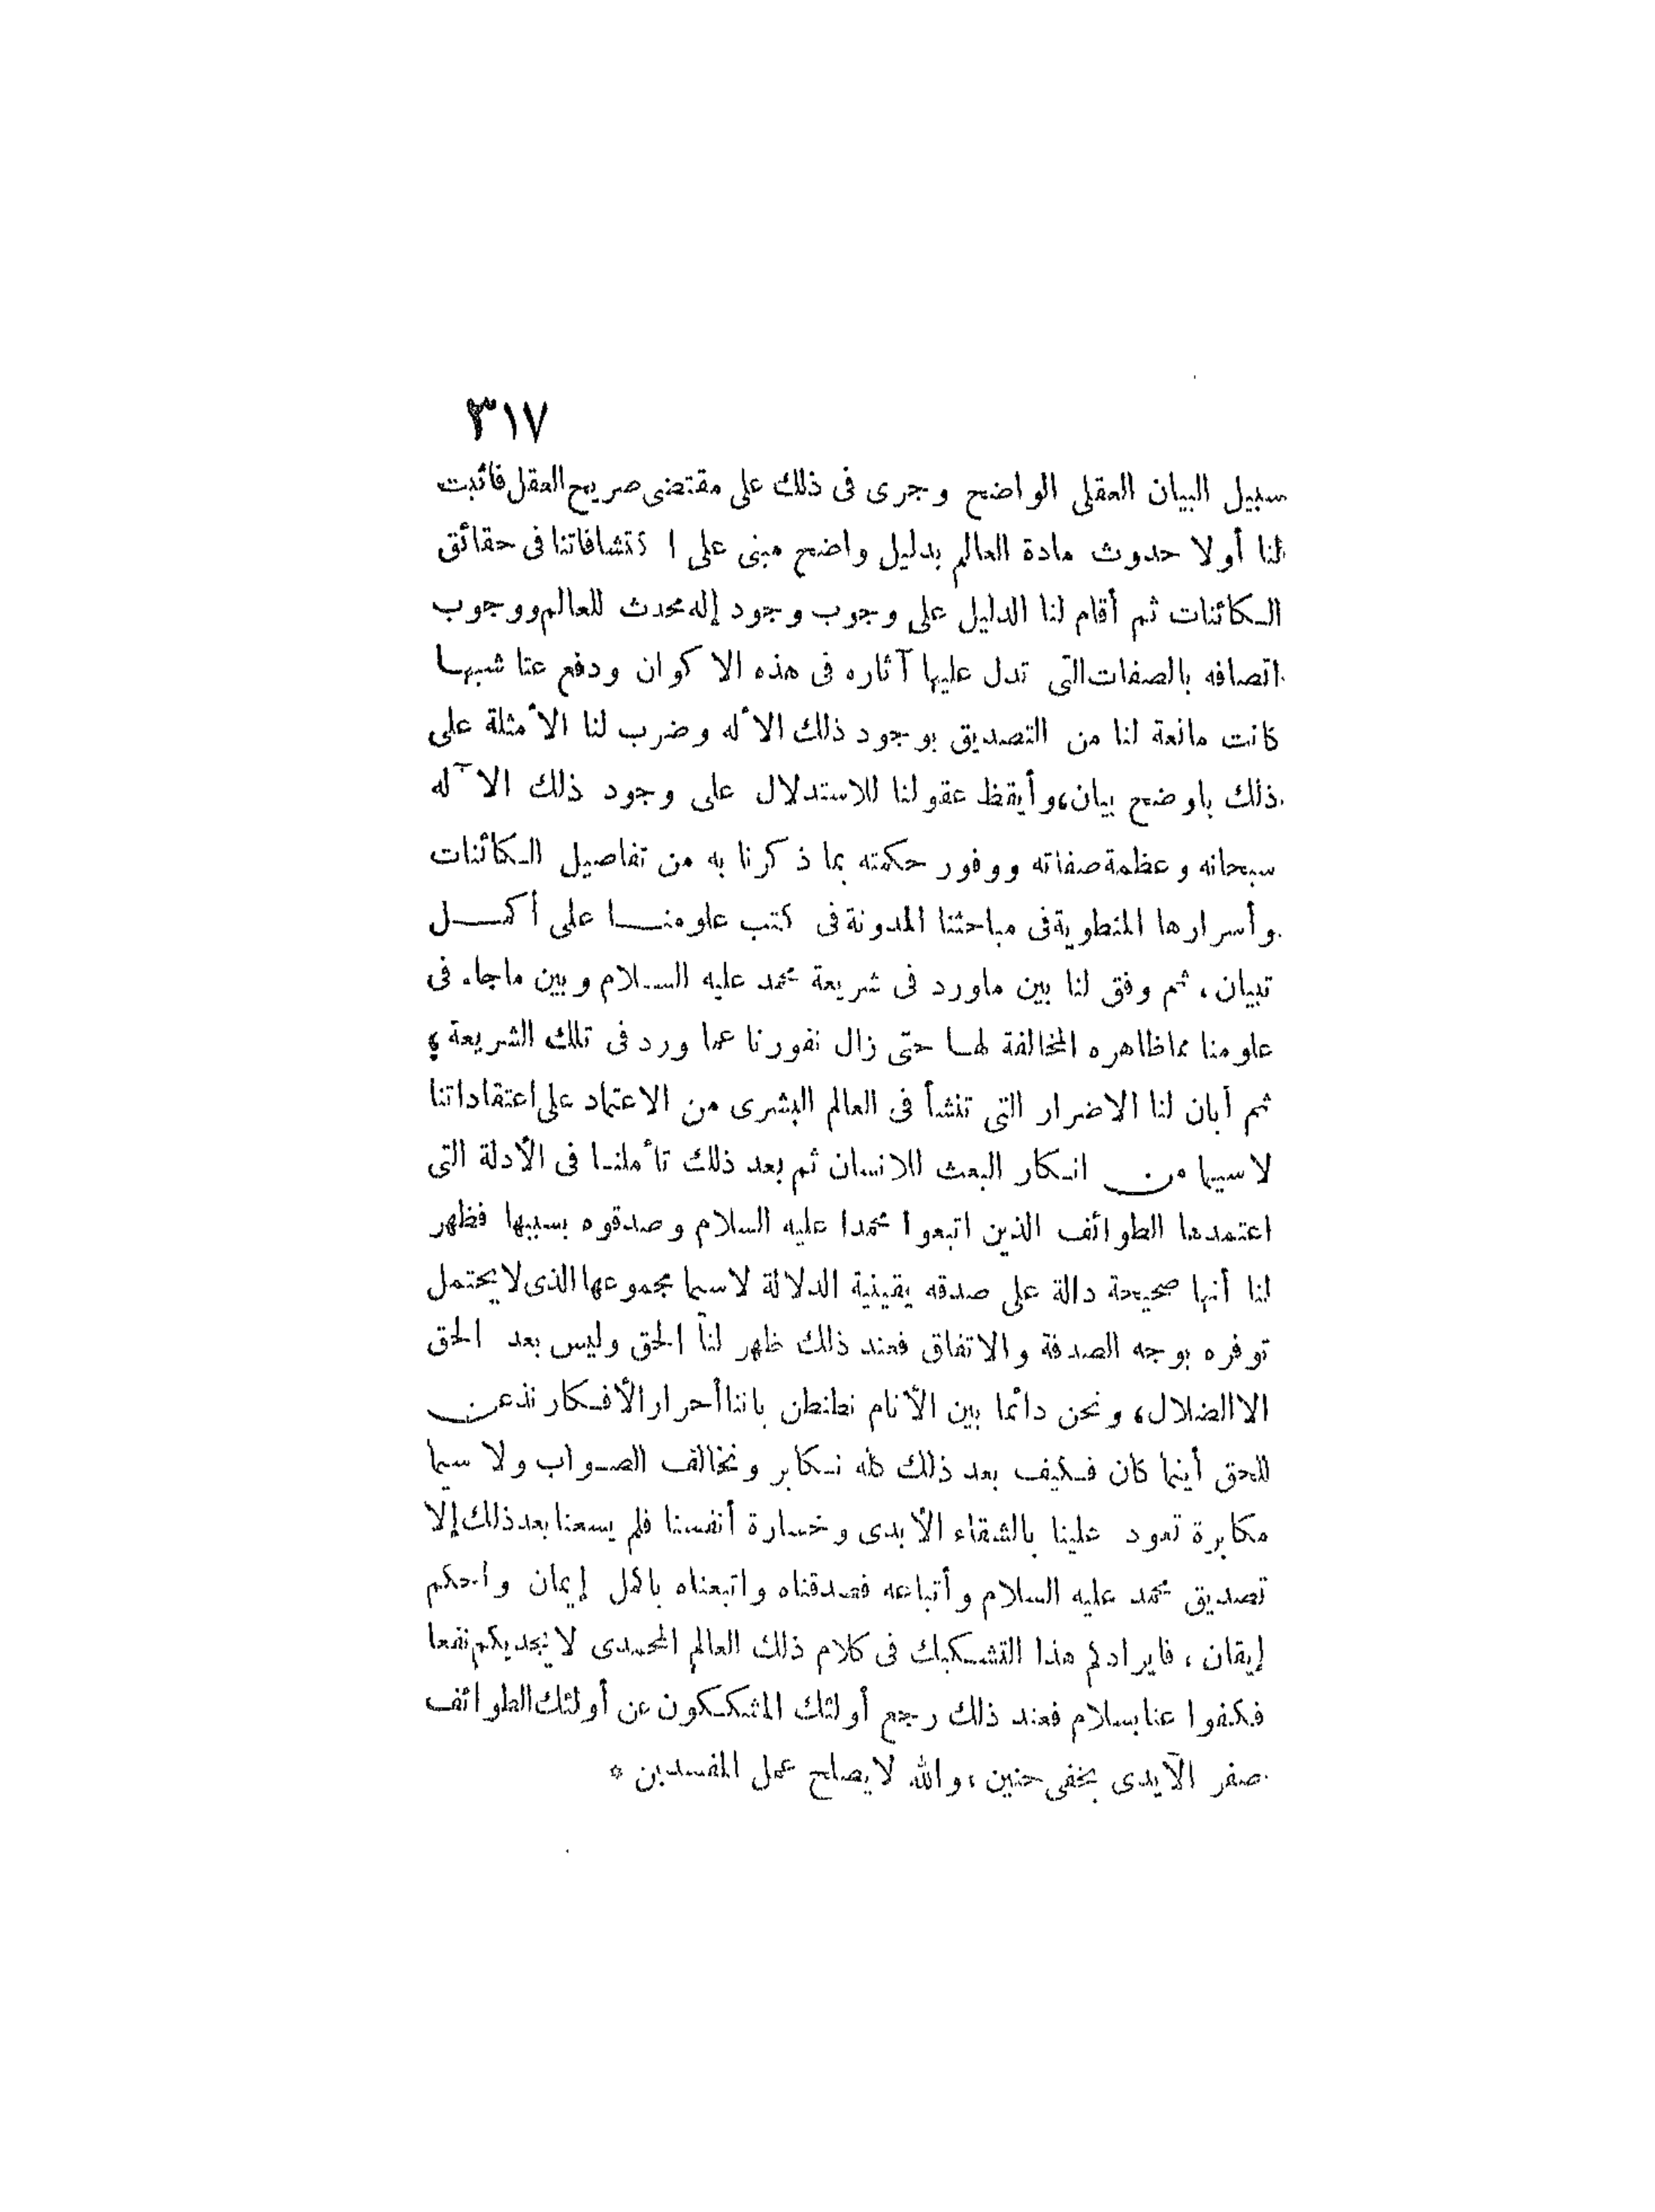 ٣١٧
سبيل البيان العقلى الواضح وجرى فى ذلك على مقتضى صريح العقل فاثبت
لنا أولا حدوث مادة العالم بدليل واضح مبنى على اكتشافاتنا فى حقائق
الكائنات ثم أقام لنا الدليل على وجوب وجود إله محدث للعالم ووجوب
اتصافه بالصفات التى تدل عليها آثاره فى هذه الاكوان ودفع عنا شبها
كانت مانعة لنا من التصديق بوجود ذلك الأله وضرب لنا الأمثلة على
ذلك باوضح بيان، وأيقظ عقولنا للاستدلال على وجود ذلك الآله
سبحانه وعظمة صفاته ووفور حكمته بما ذكرنا به من تفاصيل الكائنات
وأسرارها المنطوية فى مباحثنا المدونة فى كتب علومنا على أكمل
تبيان ، ثم وفق لنا بين ماورد فى شريعة محمد عليه السلام وبين ماجاء فى
علومنا مماظاهره المخالفة لها حتى زال نفورنا عما ورد فى تلك الشريعة ؛
ثم أبان لنا الاضرار التى تنشأ فى العالم البشرى من الاعتماد على اعتقاداتنا
لاسيما من انكار البعث للانسان ثم بعد ذلك تأملنا فى الأدلة التى
اعتمدها الطوائف الذين اتبعوا محمدا عليه السلام وصدقوه بسببها فظهر
لنا أنها صحيحة دالة على صدقه يقينية الدلالة لاسيما مجموعها الذى لايحتمل
توفره بوجه الصدفة والاتفاق فعند ذلك ظهر لنا الحق وليس بعد الحق
الاالضلال، ونحن دائما بين الأنام نطنطن باننا أحرار الأفكار نذعن
للحق أينما كان فكيف بعد ذلك كله نكابر ونخالف الصواب ولا سيما
مكابرة تعود علينا بالشقاء الأبدى وخسارة أنفسنا فلم يسعنا بعد ذلك إلا
تصديق محمد عليه السلام وأتباعه فصدقناه واتبعناه باكمل إيمان وأحكم
إيقان ، فايرادكم هذا التشكيك فى كلام ذلك العالم المحمدى لايجديكم نفعا
فكفوا عنا بسلام فعند ذلك رجع أولئك المشككون عن أولئك الطوائف
صفر الأيدى بخفى حنين ، والله لايصلح عمل المفسدين *